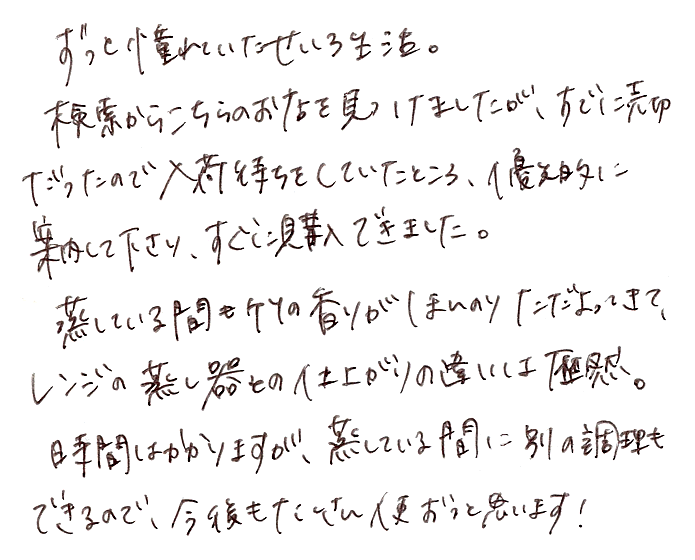 ずっと憧れていたせいろ生活。
検索からこちらのお店を見つけましたが、すでに売切
だったので入荷待ちをしていたところ、優先的に
案内して下さり、すぐに購入できました。
蒸している間も竹の香りがほんのりただよってきて、
レンジの蒸し器との仕上がりの違いは歴然。
時間はかかりますが、蒸している間に別の調理も
できるので、今後もたくさん使おうと思います!